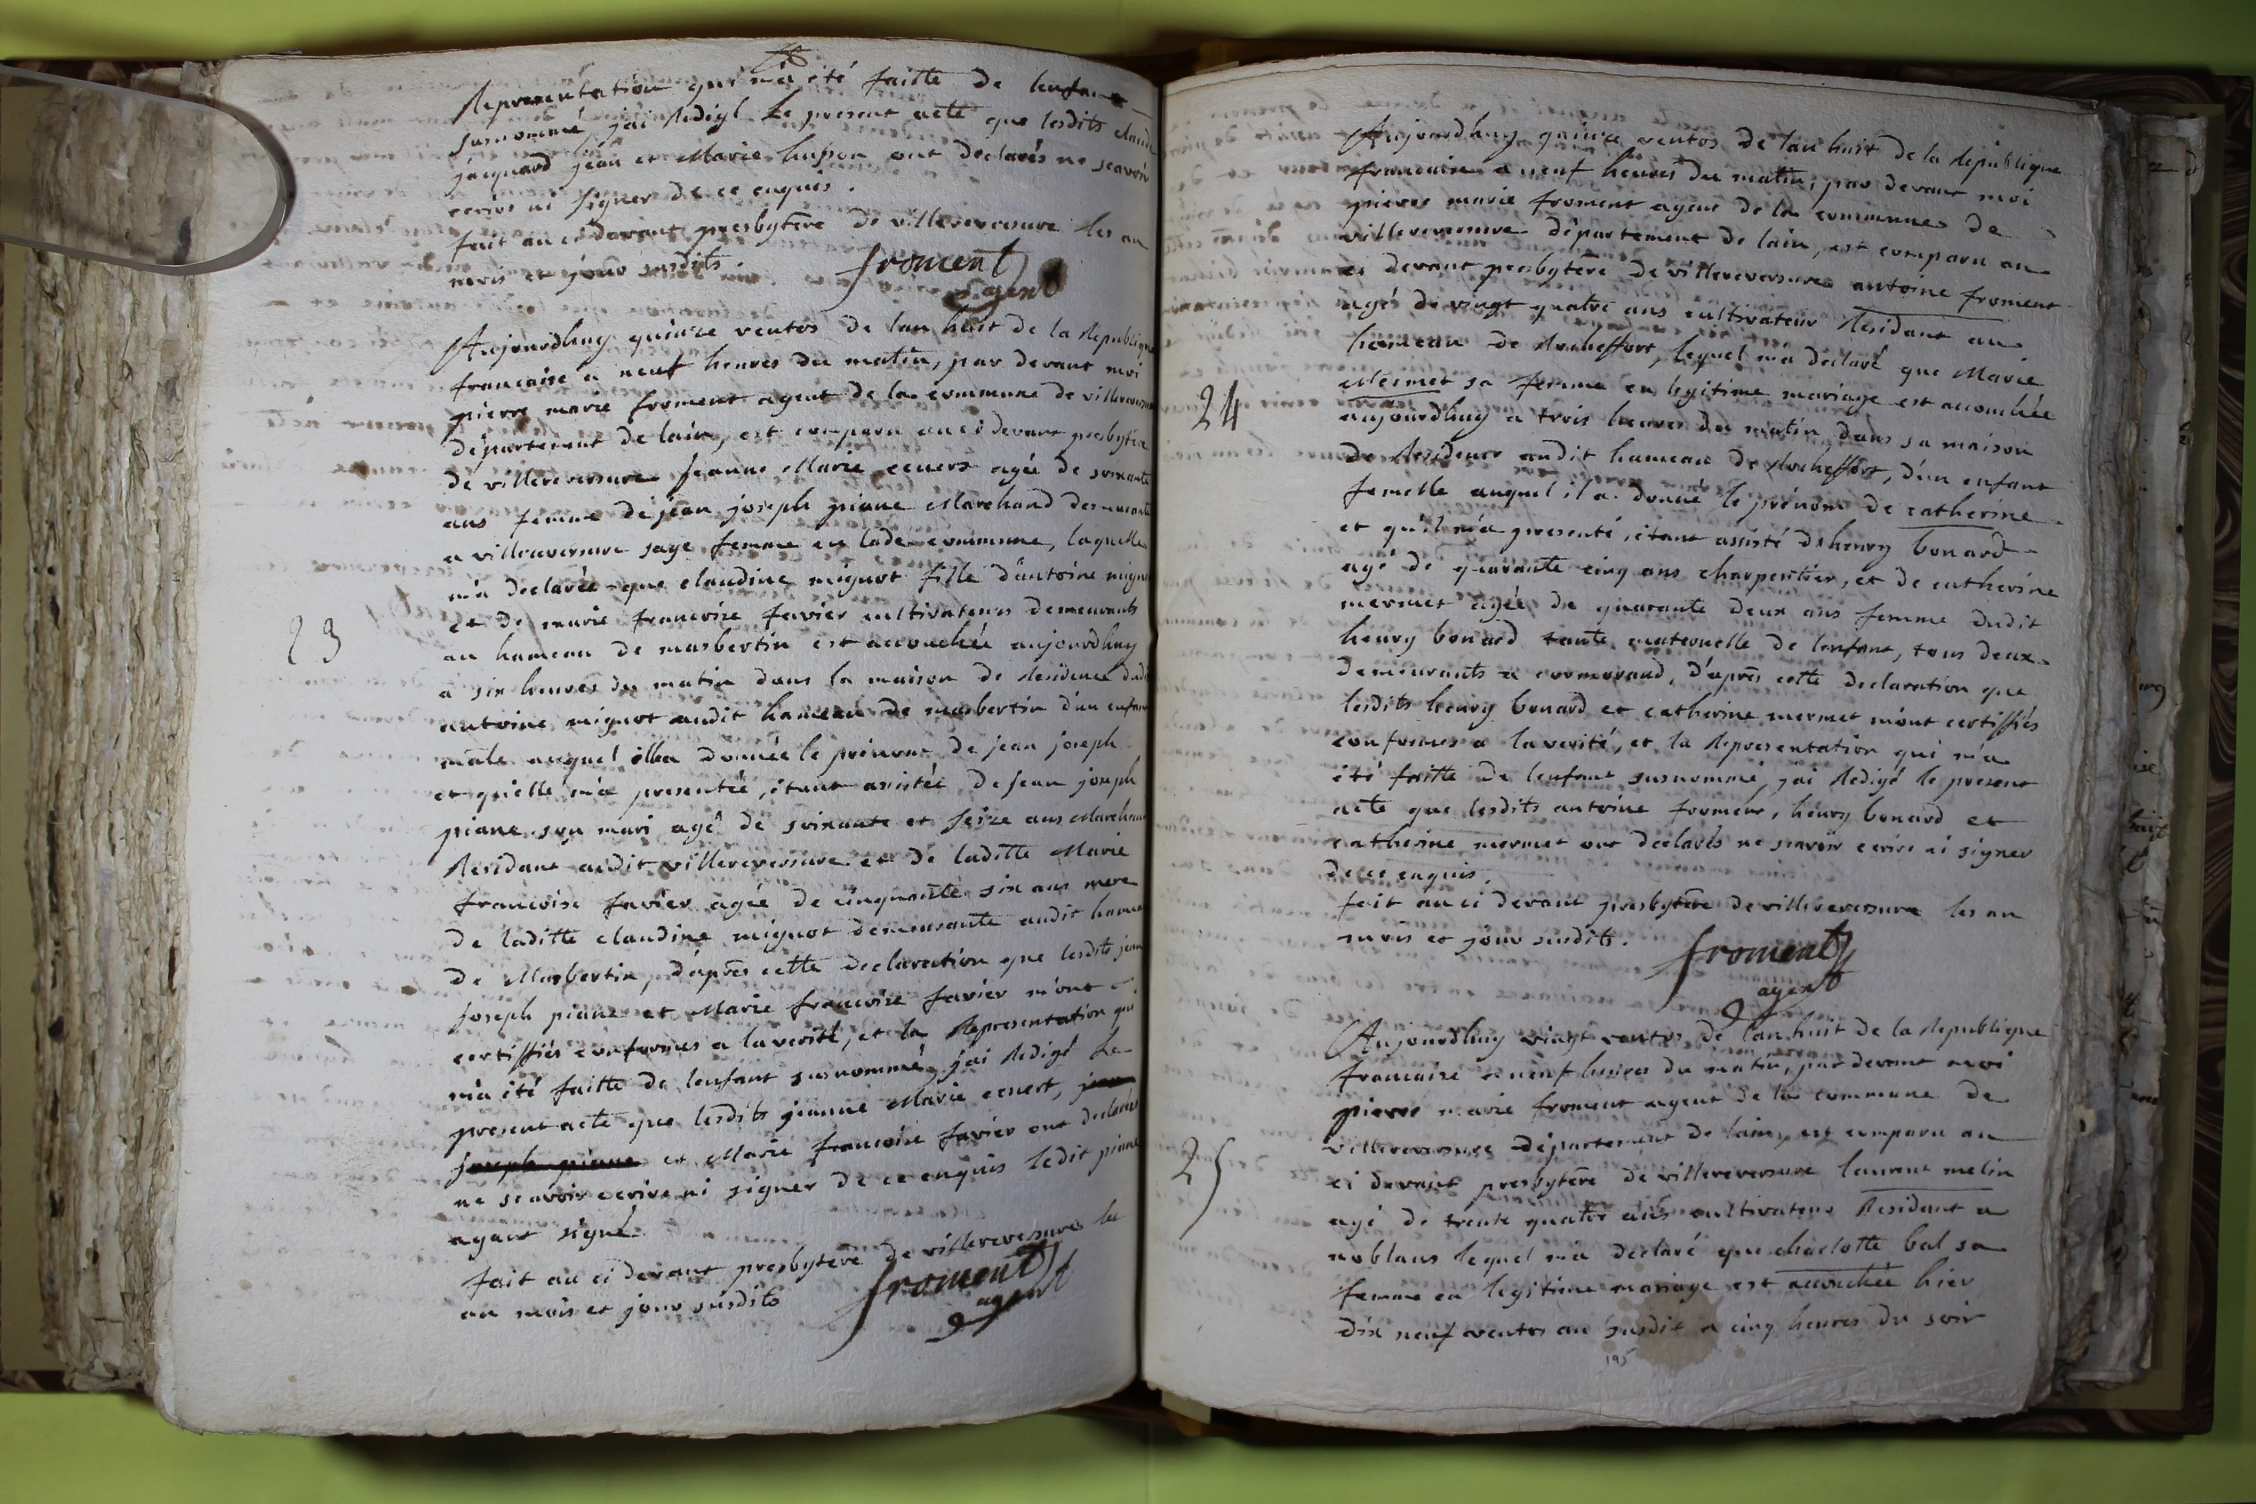 Representation qui m'a été faitte de lenfant
surnommé, j'ai Redigé le present acte que lesdits claude
jacquard jean et Marie husson ont declarés ne scavoir
ecrire ni signer de ce enquis.
fait au ci devant presbytère de villereversure les an
mois et jour susdits.
froment
agent
23
Aujourdhuy quinze ventos de lan huit de la Republique
francaise a neuf heures du matin, par devant moi
pierre marie froment agent de la commune de villereversure
département de lain, est comparu au ci devant presbytère
de villereversure jeanne Marie agée de soixante
ans femme de jean joseph piane Marchand demeurante
a villereversure sage femme en lade commune, laquelle
m'a declarée que claudine mignot fille d'antoine mignot
et de marie francoise favier cultivateurs demeurants
au hameau de masbertin est accouchée aujourdhuy
a six heures du matin dans la maison de Residence dudit
antoine mignot audit hameau de masbertin d'un enfant
mâle auquel ella donnée le prénom de jean joseph
et qu'elle m'a presentée, étant assistée de jean joseph
piane son mari agé de soixante et seize ans Marchand
Residant audit villereversure et de laditte Marie
francoise favier agée de cinquante six ans mere
de laditte claudine mignot demeurante audit hameau
de Masbertin, d'après cette declaration que lesdits jean
joseph piane et Marie francoise favier m'ont
certiffiés conformes a la verité, et la Representation qui
m'a été faitte de lenfant surnommé, j'ai Redigé le
present acte que lesdits jeanne Marie, jean
joseph piane et Marie francoise favier ont declarées
ne scavoir ecrire ni signer de ce enquis ledit piane
ayant signé.
fait au ci devant presbytère de villereversure les
an mois et jour susdits
froment
agent
24
Aujourdhuy quinze ventos de lan huit de la Republique
francaise a neuf heures du matin, par devant moi
pierre marie froment agent de la commune de
villereversure département de lain, est comparu au
ci devant presbytère de villereversure antoine froment
agé de vingt quatre ans cultivateur Residant au
hameau de Rocheffort, lequel m'a declaré que Marie
Mermet sa femme en legitime mariage est accouchée
aujourdhuy a trois heures du matin dans sa maison
de Residence audit hameau de Rocheffort, d'un enfant
femelle auquel il a donné le prénom de catherine
et qu'il m'a presenté, étant assisté de henry bonard
agé de quarante cinq ans charpentier, et de catherine
mermet agée de quarante deux ans femme dudit
henry bonard tante maternelle de lenfant, tous deux
demeurants a cormorand, d'après cette declaration que
lesdits henry bonard et catherine mermet m'ont certiffiés
conformes a la verité, et la Representation qui m'a
été faitte de lenfant susnommé, j'ai Redigé le present
acte que lesdits antoine froment, henry bonard et
catherine mermet ont declarés ne scavoir ecrire ni signer
de ce enquis.
fait au ci devant presbytère de villereversure les an
mois et jour susdits.
froment
agent
25
Aujourdhuy vingt ventos de lan huit de la Republique
francaise a neuf heures du matin, par devant moi
pierre marie froment agent de la commune de
villereversure département de lain, est comparu au
ci devant presbytère de villereversure laurent melin
agé de trente quatre ans cultivateur Residant a
noblans lequel m'a declaré que charlotte bal sa
femme en legitime mariage est accouchée hier
dix neuf ventos an susdit a cinq heures du soir
195